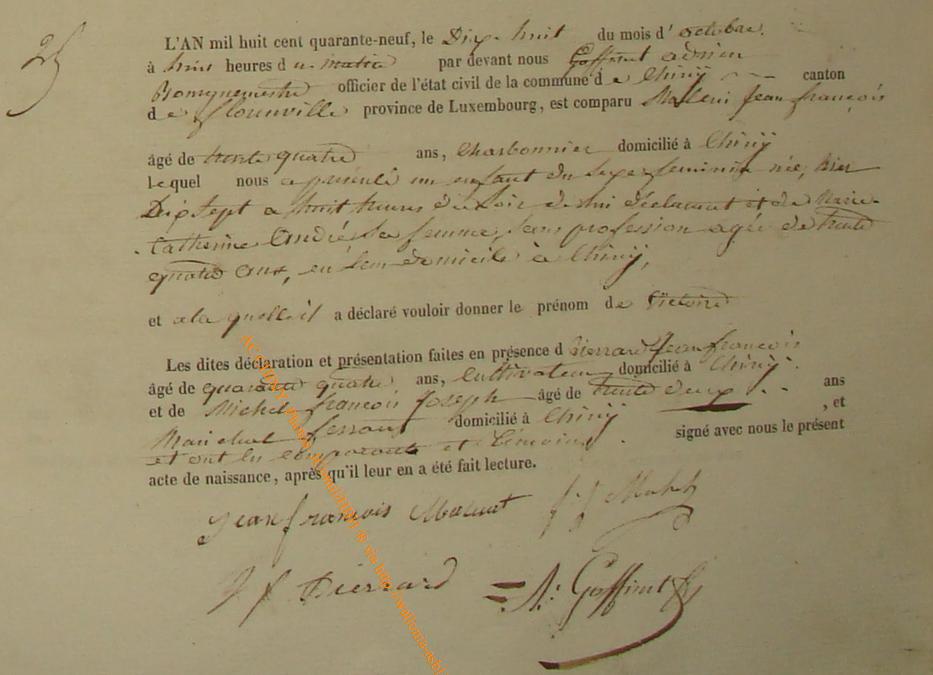 25
L'AN mil huit cent quarante-neuf, le Dix-huit du mois d'octobre
à huit heures du matin par devant nous Goffinet adrien
Bourgmestre officier de l'état civil de la commune de Chiny canton
de florenville province de Luxembourg, est comparu Jean françois
âgé de trente quatre ans, Charbonnier domicilié à Chiny
lequel nous a présenté un enfant du sexe feminin née, hier
Dix sept a huit heures du soir de lui déclarant et de Marie
Catherine André sa femme, sans profession agée de trente
quatre ans, en leur domicile à Chiny,
et a la quelle il a déclaré vouloir donner le prénom de Victoire
Les dites déclaration et présentation faites en présence d Pierrard Jean francois
âgé de quarante quatre ans, Cultivateur domicilié à Chiny
et de Michel françois Joseph âgé de trente deux ans
Marichal ferrant domicilié à Chiny , et
et ont les comparants et témoins signé avec nous le présent
acte de naissance, après qu'il leur en a été fait lecture.
Jean françois
J f Pierrard A: Goffinet